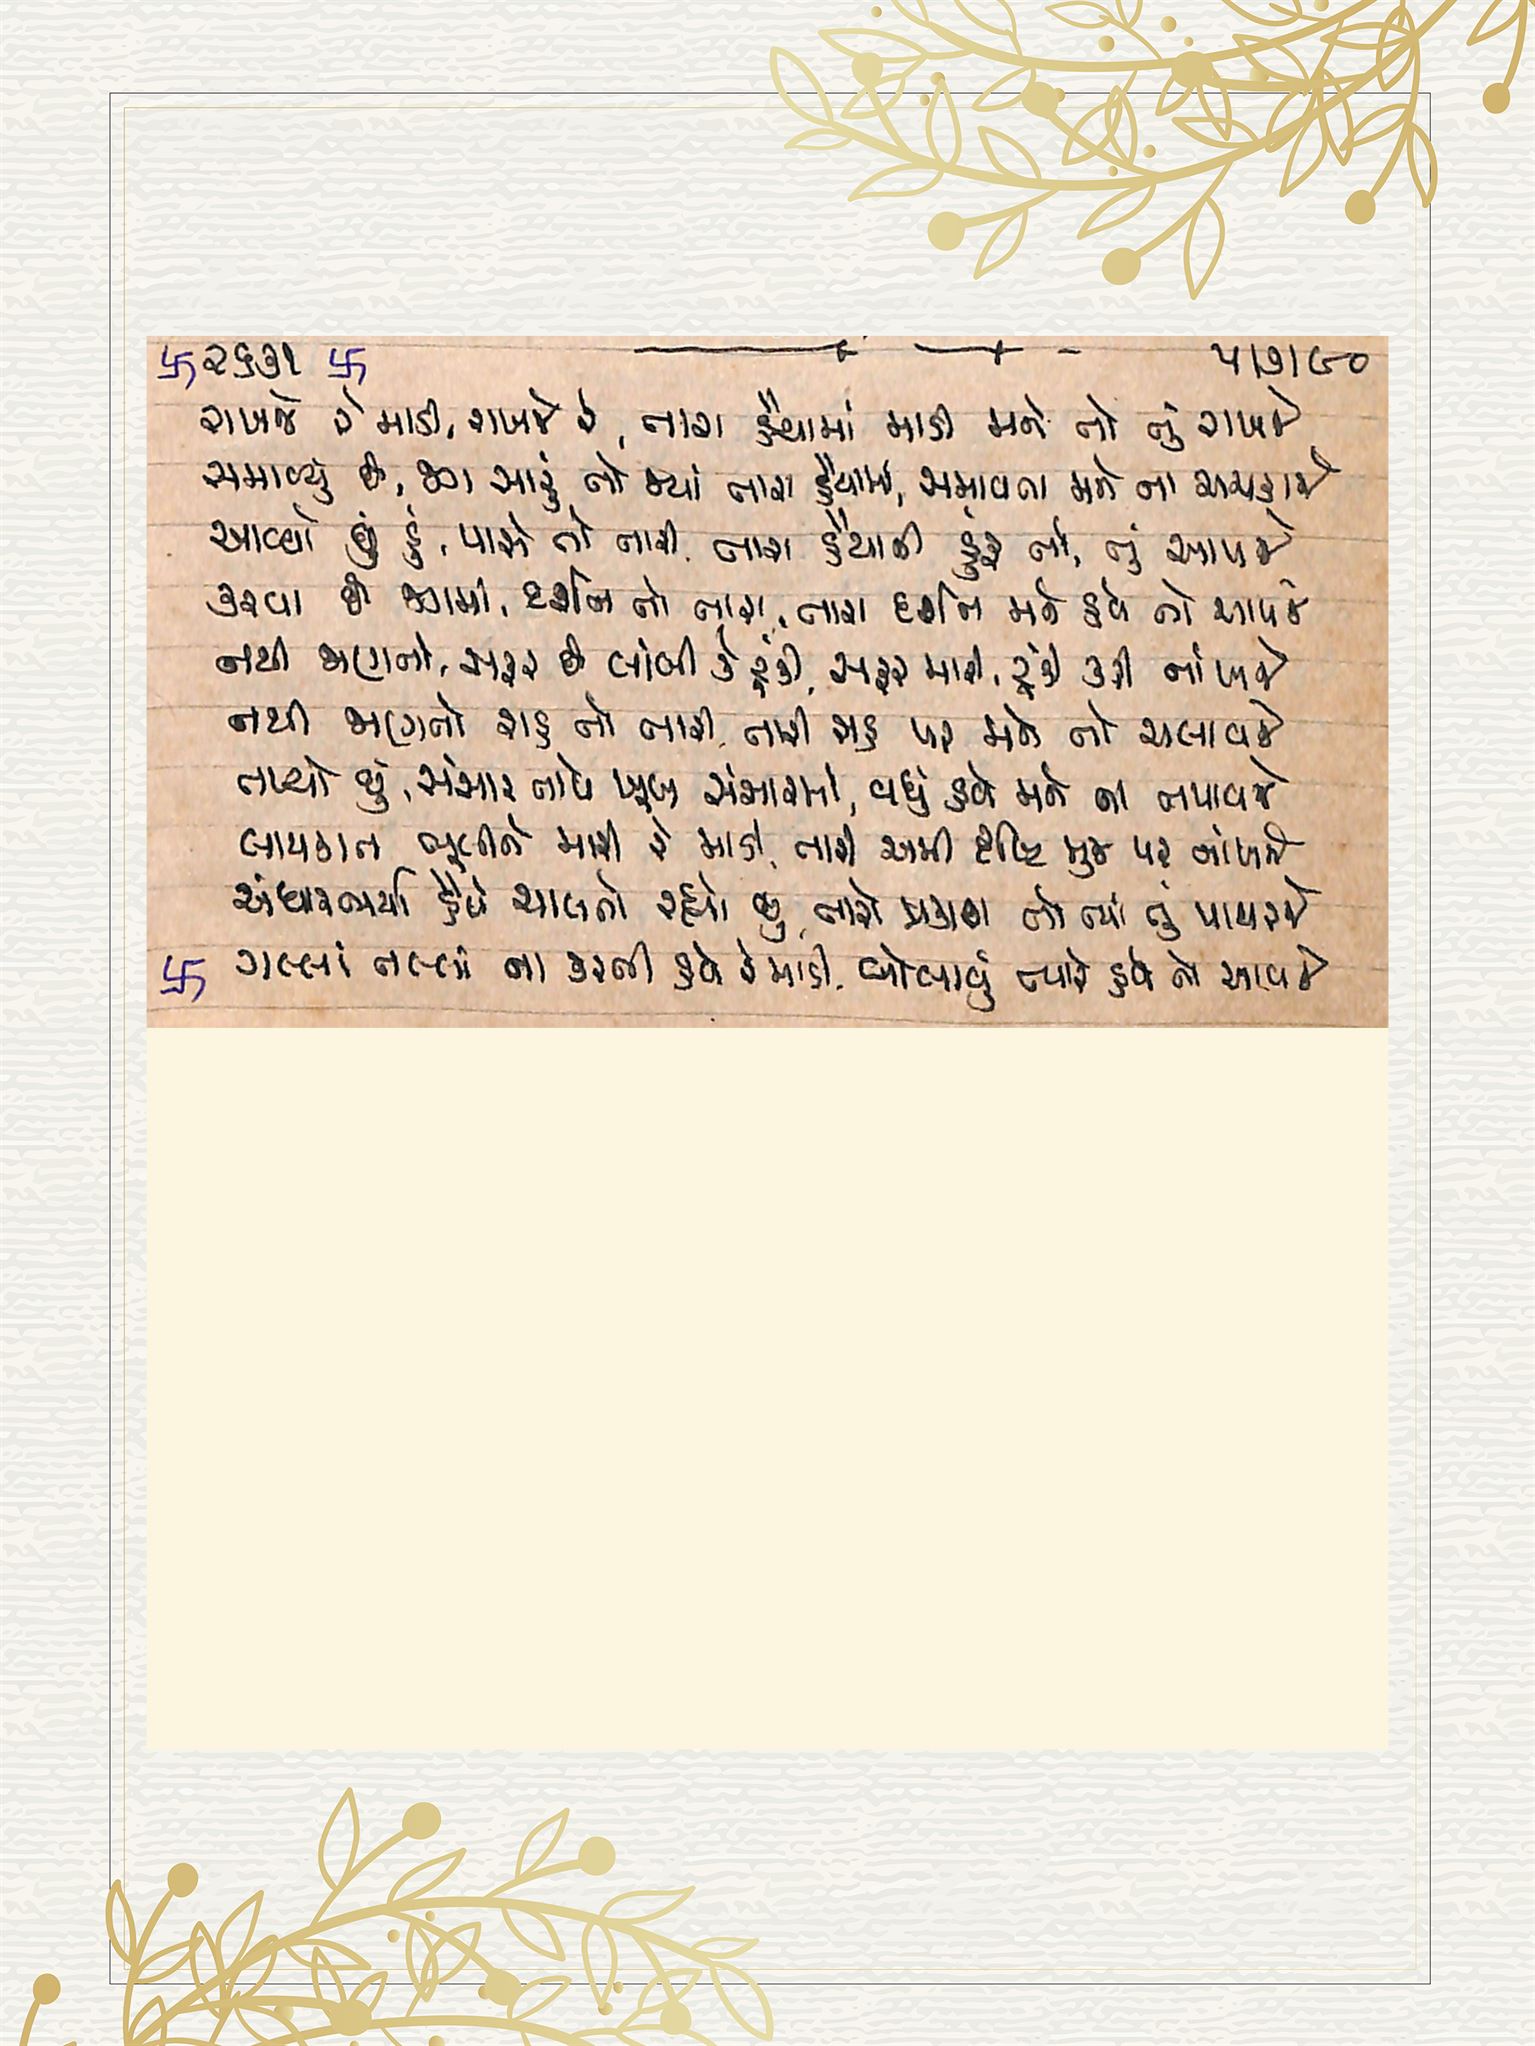 卐 ૨૬૩૧ 卐 ૫/૭/૯૦
રાખજે રે માડી, રાખજે રે, તારા હૈયામાં માડી મને તો તું રાખજે
સમાવ્યું છે, જગ સારું તો જ્યાં તારા હૈયામાં, સમાવતા મને ના અચકાજે
આવ્યો છું હું, પાસે તો તારી, તારા હૈયાની હુંફ તો, તું આપજે
કરવા છે જગમાં, દર્શન તો તારા, તારા દર્શન મને હવે તો આપજે
નથી જાણતો, સફર છે લાંબી કે ટૂંકી, સફર મારી, ટૂંકી કરી નાંખજે
નથી જાણતો રાહ તો તારી, તારી રાહ પર મને તો ચલાવજે
તપ્યો છું, સંસાર તાપે ખૂબ સંસારમાં, વધુ હવે મને ના તપાવજે
લાયકાત ભૂલીને મારી રે માડી, તારી અમી દૃષ્ટિ મુજ પર નાંખજે
અંધારભર્યા હૈયે ચાલતો રહ્યો છું, તારો પ્રકાશ તો ત્યાં તું પાથરજે
卐 ગલ્લાં તલ્લાં ના કરતી હવે રે માડી, બોલાવું ત્યારે હવે તો આવજે